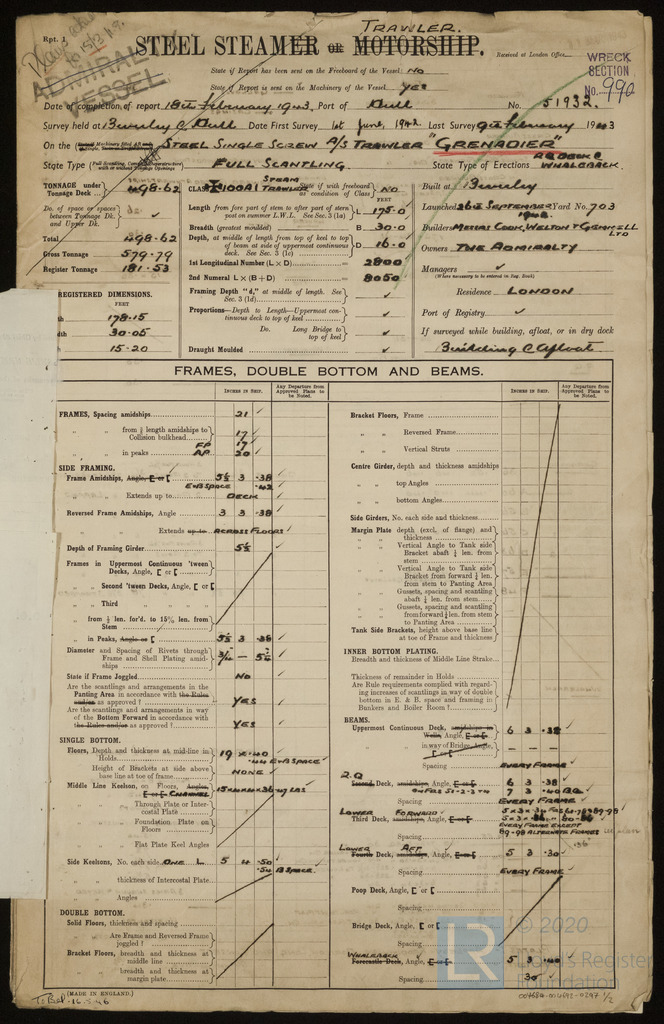 Rpt. 1
TRAWLER.
STEEL STEAMER OR MOTORSHIP.
ADMIRAL
VESSEL
Received at London Office
WRECK
SECTION
No. 990
State if Report has been sent on the Freeboard of the Vessel: NO
State if Report is sent on the Machinery of the Vessel. YES
Date of completion of report 18th February 1943. Port of Hull No. 51932.
Survey held at Beverley & Hull Date First Survey 1st June, 1942 Last Survey 9th February 1943
On the STEEL SINGLE SCREW A/S TRAWLER "GRENADIER"
State Type FULL SCANTLING State Type of Erections WHALEBACK.
TONNAGE under Tonnage Deck 498.62
Do. of space or spaces between Tonnage Dk. and Upper Dk.
Total 498.62
Gross Tonnage 579.79
Register Tonnage 181.53
REGISTERED DIMENSIONS.
FEET
178.15
30.05
15.20
CLASS 100A1 STEAM TRAWLER State if with freeboard as condition of Class NO
FEET
Length from fore part of stem to after part of stern post on summer L.W.L. See Sec. 3 (1a) L 175.0
Breadth (greatest moulded) B 30.0
Depth, at middle of length from top of keel to top of beam at side of uppermost continuous deck. See Sec. 3 (1c) D 16.0
1st Longitudinal Number (L × D) 2800
2nd Numeral L × (B + D) 8050
Framing Depth "d," at middle of length. See Sec. 3 (1d)
Proportions—Depth to Length—Uppermost continuous deck to top of keel
Do. Long Bridge to top of keel
Draught Moulded
Built at Beverley
Launched 26th SEPTEMBER 1942 Yard No. 703
Builders MESSRS COOK, WELTON & GEMMELL LTD
Owners THE ADMIRALTY
Managers
(Where necessary to be entered in Reg. Book)
Residence LONDON
Port of Registry
If surveyed while building, afloat, or in dry dock
Building & Afloat
FRAMES, DOUBLE BOTTOM AND BEAMS.
INCHES IN SHIP.
Any Departure from Approved Plans to be Noted.
FRAMES, Spacing amidships 21
" " from ⅗ length amidships to Collision bulkhead 17
FP 17
" " in peaks AP 20
SIDE FRAMING.
Frame Amidships, Angle, [ or [ 5½ 3 .38
E&B SPACE .42
" " Extends up to DECK
Reversed Frame Amidships, Angle 3 3 .38
" " Extends up to ACROSS FLOORS
Depth of Framing Girder 5½
Frames in Uppermost Continuous 'tween Decks, Angle, [ or [
" Second 'tween Decks, Angle, [ or [
" Third " "
" from ⅕ len. for'd. to 15% len. from Stem
" in Peaks, Angle or [ 5½ 3 .38
Diameter and Spacing of Rivets through Frame and Shell Plating amidships 3/4 — 5¼
State if Frame Joggled NO
Are the scantlings and arrangements in the Panting Area in accordance with the Rules and/or as approved? YES
Are the scantlings and arrangements in way of the Bottom Forward in accordance with the Rules and/or as approved? YES
SINGLE BOTTOM.
Floors, Depth and thickness at mid-line in Holds 19 × .40
.44 E&B SPACE
Height of Brackets at side above base line at toe of frame NONE
Middle Line Keelson, on Floors, Angles, [ or [ CHANNEL
" " Through Plate or Intercostal Plate
" " Foundation Plate on Floors
" " Flat Plate Keel Angles
Side Keelsons, No. each side ONE L 5 4 .50
.54 B SPACE
" " thickness of Intercostal Plate
" " Angles
DOUBLE BOTTOM.
Solid Floors, thickness and spacing
" " Are Frame and Reversed Frame joggled?
Bracket Floors, breadth and thickness at middle line
" " breadth and thickness at margin plate
INCHES IN SHIP.
Any Departure from Approved Plans to be Noted.
Bracket Floors, Frame
" " Reversed Frame
" " Vertical Struts
Centre Girder, depth and thickness amidships
" " top Angles
" " bottom Angles
Side Girders, No. each side and thickness
Margin Plate depth (excl. of flange) and thickness
" " Vertical Angle to Tank side Bracket abaft ¼ len. from stem
" " Vertical Angle to Tank side Bracket from forward ¼ len. from stem to Panting Area
" " Gussets, spacing and scantling abaft ¼ len. from stem
" " Gussets, spacing and scantling from forward ¼ len. from stem to Panting Area
Tank Side Brackets, height above base line at toe of Frame and thickness
INNER BOTTOM PLATING.
Breadth and thickness of Middle Line Strake
Thickness of remainder in Holds
Are Rule requirements complied with regarding increases of scantlings in way of double bottom in E. & B. space and framing in Bunkers and Boiler Room?
BEAMS.
Uppermost Continuous Deck, amidships in Wells, Angle, [ or [ 6 3 .38
" " in way of Bridge, Angle, [ or [
Spacing EVERY FRAME
Second Deck, amidships, Angle, [ or [ 6 3 .38
7 3 .40
Spacing EVERY FRAME
LOWER FORWARD
Third Deck, amidships, Angle, [ or [
Spacing EVERY FRAME EXCEPT
89-98 ALTERNATE FRAMES
LOWER AFT
Fourth Deck, amidships, Angle, [ or [ 5 3 .30
Spacing EVERY FRAME
Poop Deck, Angle, [ or [
Spacing
Bridge Deck, Angle, [ or [
Spacing
WHALEBACK
Forecastle Deck, Angle, [ or [ 5 3 .40
Spacing 30
(MADE IN ENGLAND.)
LR © 2020
Lloyd's Register
Foundation